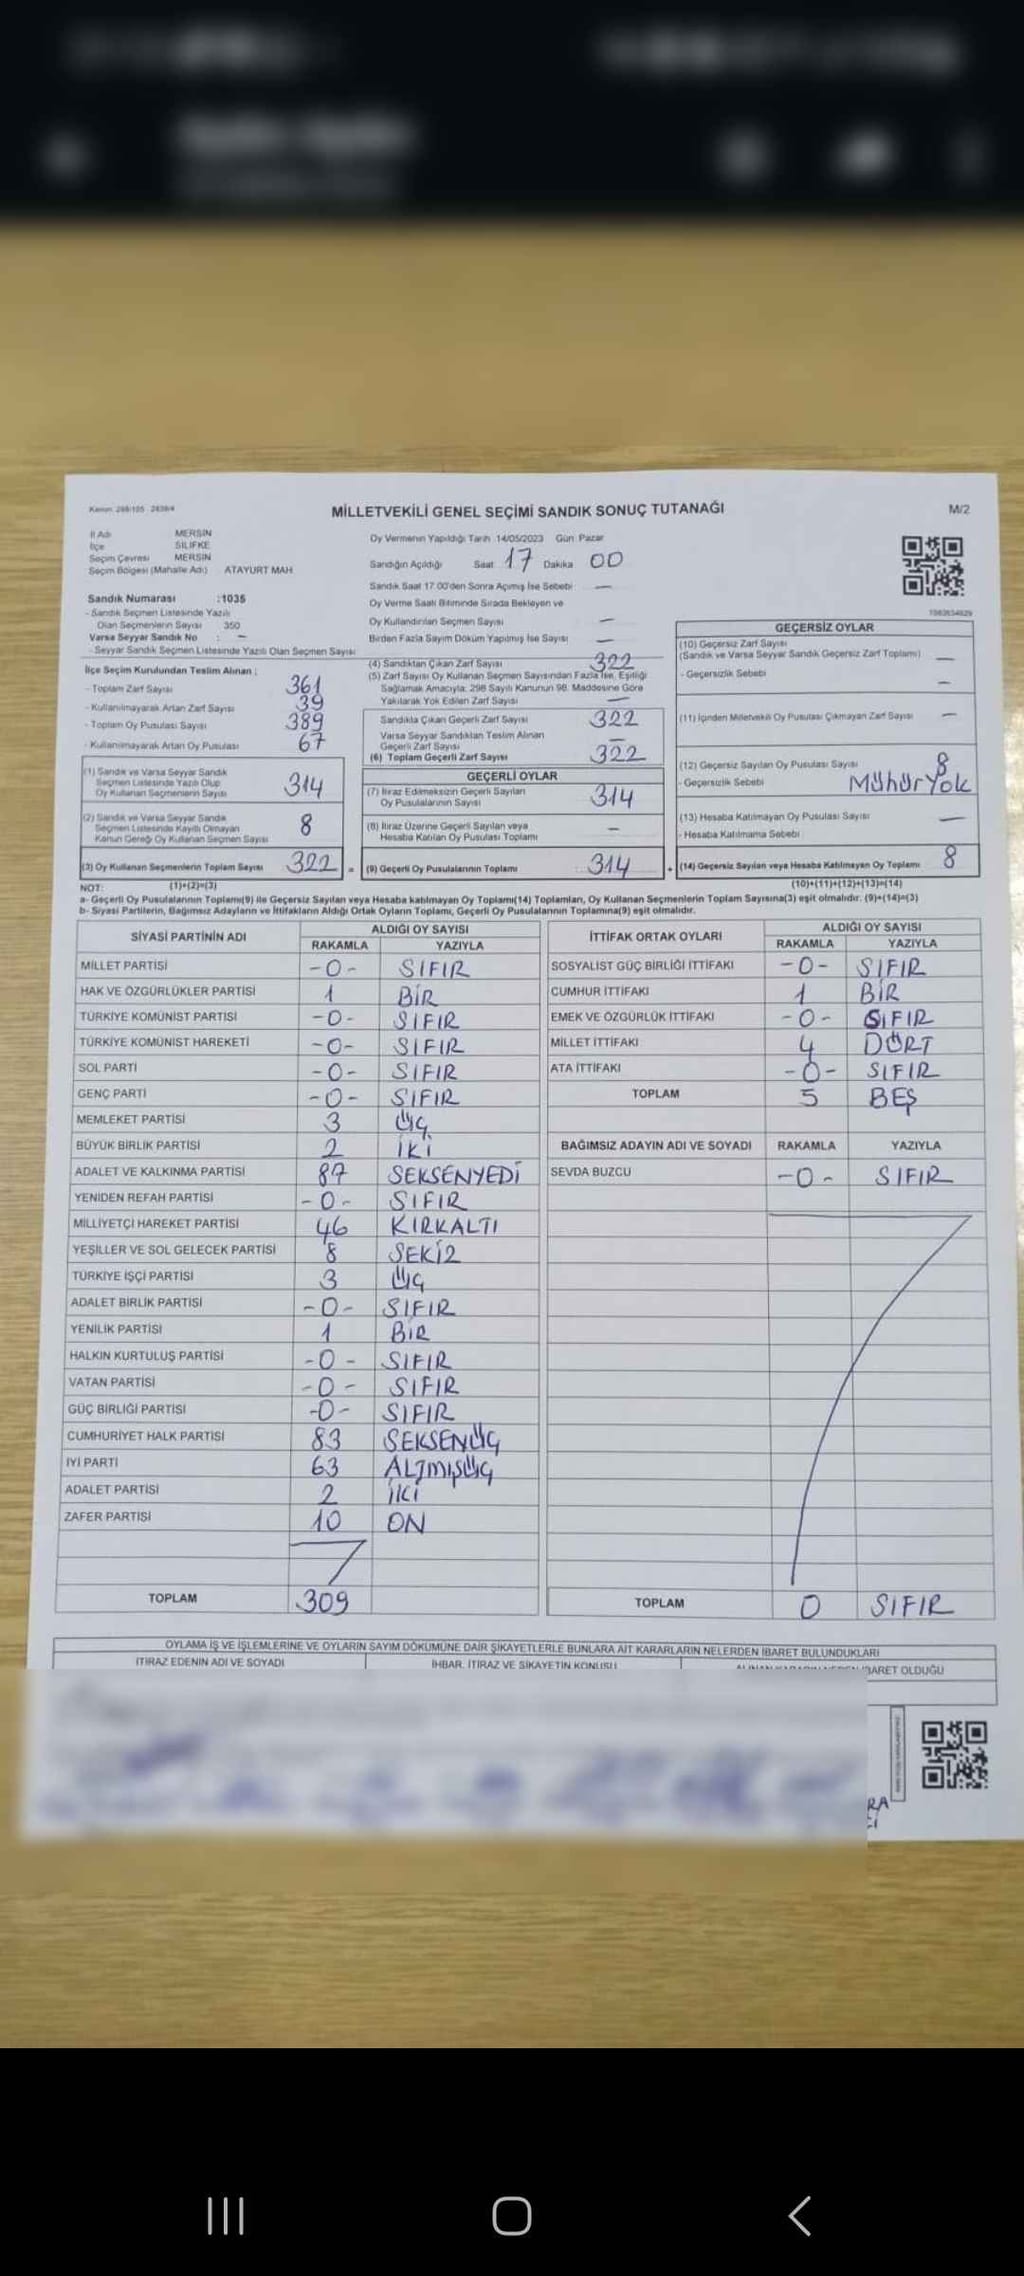 Kanun: 298/105 2839/4
MİLLETVEKİLİ GENEL SEÇİMİ SANDIK SONUÇ TUTANAĞI
M/2
İl Adı MERSİN
İlçe SİLİFKE
Seçim Çevresi MERSİN
Seçim Bölgesi (Mahalle Adı) ATAYURT MAH
Sandık Numarası :1035
- Sandık Seçmen Listesinde Yazılı
Olan Seçmenlerin Sayısı 350
Varsa Seyyar Sandık No : -
- Seyyar Sandık Seçmen Listesinde Yazılı Olan Seçmen Sayısı
Oy Vermenin Yapıldığı Tarih 14/05/2023 Gün Pazar
Sandığın Açıldığı Saat 17 Dakika 00
Sandık Saat 17.00'den Sonra Açımış İse Sebebi —
Oy Verme Saati Bitiminde Sırada Bekleyen ve
Oy Kullandırılan Seçmen Sayısı —
Birden Fazla Sayım Döküm Yapılmış İse Sayısı —
İlçe Seçim Kurulundan Teslim Alınan :
- Toplam Zarf Sayısı 361
- Kullanılmayarak Artan Zarf Sayısı 39
- Toplam Oy Pusulası Sayısı 389
- Kullanılmayarak Artan Oy Pusulası 67
(1) Sandık ve Varsa Seyyar Sandık
Seçmen Listesinde Yazılı Olup
Oy Kullanan Seçmenlerin Sayısı 314
(2) Sandık ve Varsa Seyyar Sandık
Seçmen Listesinde Kayıtlı Olmayan
Kanun Gereği Oy Kullanan Seçmen Sayısı 8
(3) Oy Kullanan Seçmenlerin Toplam Sayısı 322 =
(4) Sandıktan Çıkan Zarf Sayısı 322
(5) Zarf Sayısı Oy Kullanan Seçmen Sayısından Fazla İse, Eşitliği
Sağlamak Amacıyla; 298 Sayılı Kanunun 98. Maddesine Göre
Yakılarak Yok Edilen Zarf Sayısı —
Sandıkta Çıkan Geçerli Zarf Sayısı 322
Varsa Seyyar Sandıktan Teslim Alınan
Geçerli Zarf Sayısı —
(6) Toplam Geçerli Zarf Sayısı 322
GEÇERLİ OYLAR
(7) İtiraz Edilmeksizin Geçerli Sayılan
Oy Pusulalarının Sayısı 314
(8) İtiraz Üzerine Geçerli Sayılan veya
Hesaba Katılan Oy Pusulası Toplamı —
(9) Geçerli Oy Pusulalarının Toplamı 314 +
GEÇERSİZ OYLAR
(10) Geçersiz Zarf Sayısı
(Sandık ve Varsa Seyyar Sandık Geçersiz Zarf Toplamı) —
- Geçersizlik Sebebi —
(11) İçinden Milletvekili Oy Pusulası Çıkmayan Zarf Sayısı —
(12) Geçersiz Sayılan Oy Pusulası Sayısı 8
- Geçersizlik Sebebi Mühür Yok
(13) Hesaba Katılmayan Oy Pusulası Sayısı —
- Hesaba Katılmama Sebebi
(14) Geçersiz Sayılan veya Hesaba Katılmayan Oy Toplamı 8
NOT: (1)+(2)=(3) (10)+(11)+(12)+(13)=(14)
a- Geçerli Oy Pusulalarının Toplamı(9) ile Geçersiz Sayılan veya Hesaba katılmayan Oy Toplamı(14) Toplamları, Oy Kullanan Seçmenlerin Toplam Sayısına(3) eşit olmalıdır. (9)+(14)=(3)
b- Siyasi Partilerin, Bağımsız Adayların ve İttifakların Aldığı Ortak Oyların Toplamı, Geçerli Oy Pusulalarının Toplamına(9) eşit olmalıdır.
SİYASİ PARTİNİN ADI ALDIĞI OY SAYISI
RAKAMLA YAZIYLA
MİLLET PARTİSİ -0- SIFIR
HAK VE ÖZGÜRLÜKLER PARTİSİ 1 BİR
TÜRKİYE KOMÜNİST PARTİSİ -0- SIFIR
TÜRKİYE KOMÜNİST HAREKETİ -0- SIFIR
SOL PARTİ -0- SIFIR
GENÇ PARTİ -0- SIFIR
MEMLEKET PARTİSİ 3 ÜÇ
BÜYÜK BİRLİK PARTİSİ 2 İKİ
ADALET VE KALKINMA PARTİSİ 87 SEKSENYEDİ
YENİDEN REFAH PARTİSİ -0- SIFIR
MİLLİYETÇİ HAREKET PARTİSİ 46 KIRKALTI
YEŞİLLER VE SOL GELECEK PARTİSİ 8 SEKİZ
TÜRKİYE İŞÇİ PARTİSİ 3 ÜÇ
ADALET BİRLİK PARTİSİ -0- SIFIR
YENİLİK PARTİSİ 1 BİR
HALKIN KURTULUŞ PARTİSİ -0- SIFIR
VATAN PARTİSİ -0- SIFIR
GÜÇ BİRLİĞİ PARTİSİ -0- SIFIR
CUMHURİYET HALK PARTİSİ 83 SEKSENÜÇ
İYİ PARTİ 63 ALTMIŞÜÇ
ADALET PARTİSİ 2 İKİ
ZAFER PARTİSİ 10 ON
TOPLAM 309
İTTİFAK ORTAK OYLARI ALDIĞI OY SAYISI
RAKAMLA YAZIYLA
SOSYALİST GÜÇ BİRLİĞİ İTTİFAKI -0- SIFIR
CUMHUR İTTİFAKI 1 BİR
EMEK VE ÖZGÜRLÜK İTTİFAKI -0- SIFIR
MİLLET İTTİFAKI 4 DÖRT
ATA İTTİFAKI -0- SIFIR
TOPLAM 5 BEŞ
BAĞIMSIZ ADAYIN ADI VE SOYADI RAKAMLA YAZIYLA
SEVDA BUZCU -0- SIFIR
TOPLAM 0 SIFIR
OYLAMA İŞ VE İŞLEMLERİNE VE OYLARIN SAYIM DÖKÜMÜNE DAİR ŞİKAYETLERLE BUNLARA AİT KARARLARIN NELERDEN İBARET BULUNDUKLARI
İTİRAZ EDENİN ADI VE SOYADI İHBAR, İTİRAZ VE ŞİKAYETİN KONUSU İBARET OLDUĞU
RA